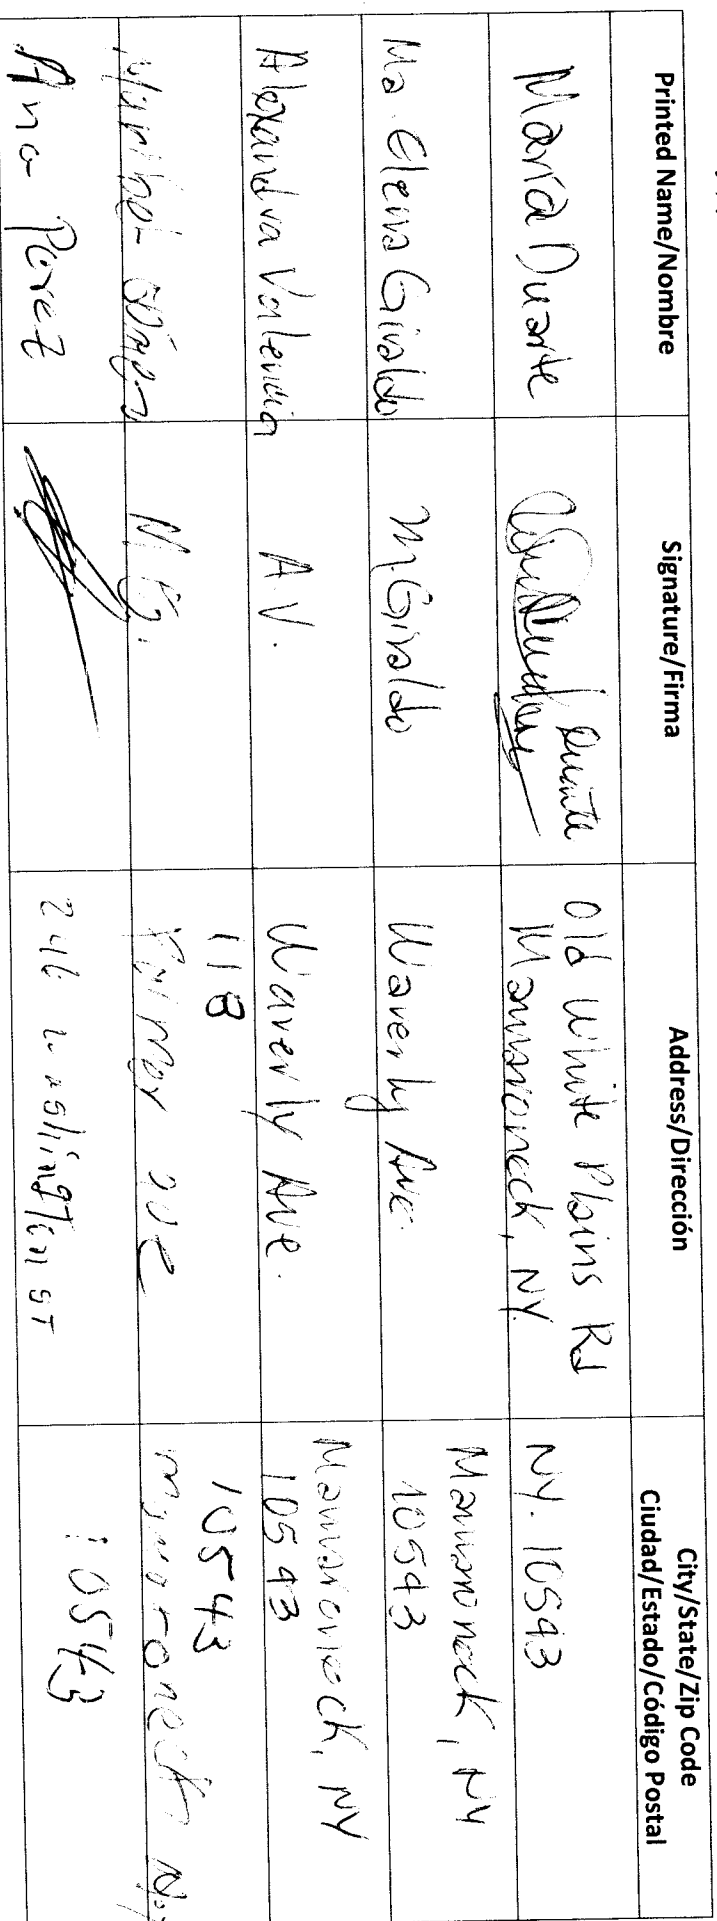 Printed Name/Nombre
Signature/Firma
Address/Dirección
City/State/Zip Code
Ciudad/Estado/Código Postal
Maria Duarte
Duarte
Old White Plains Rd
Mamaroneck, NY.
NY. 10543
Ma. Elena Giraldo
M Giraldo
Waverly Ave.
Mamaroneck, NY
10543
Alexandra Valencia
A.V.
Waverly Ave.
Mamaroneck, NY
10543
M.G.
118
ave
10543
mamaroneck N.Y
Ana Perez
246 washington ST
10543